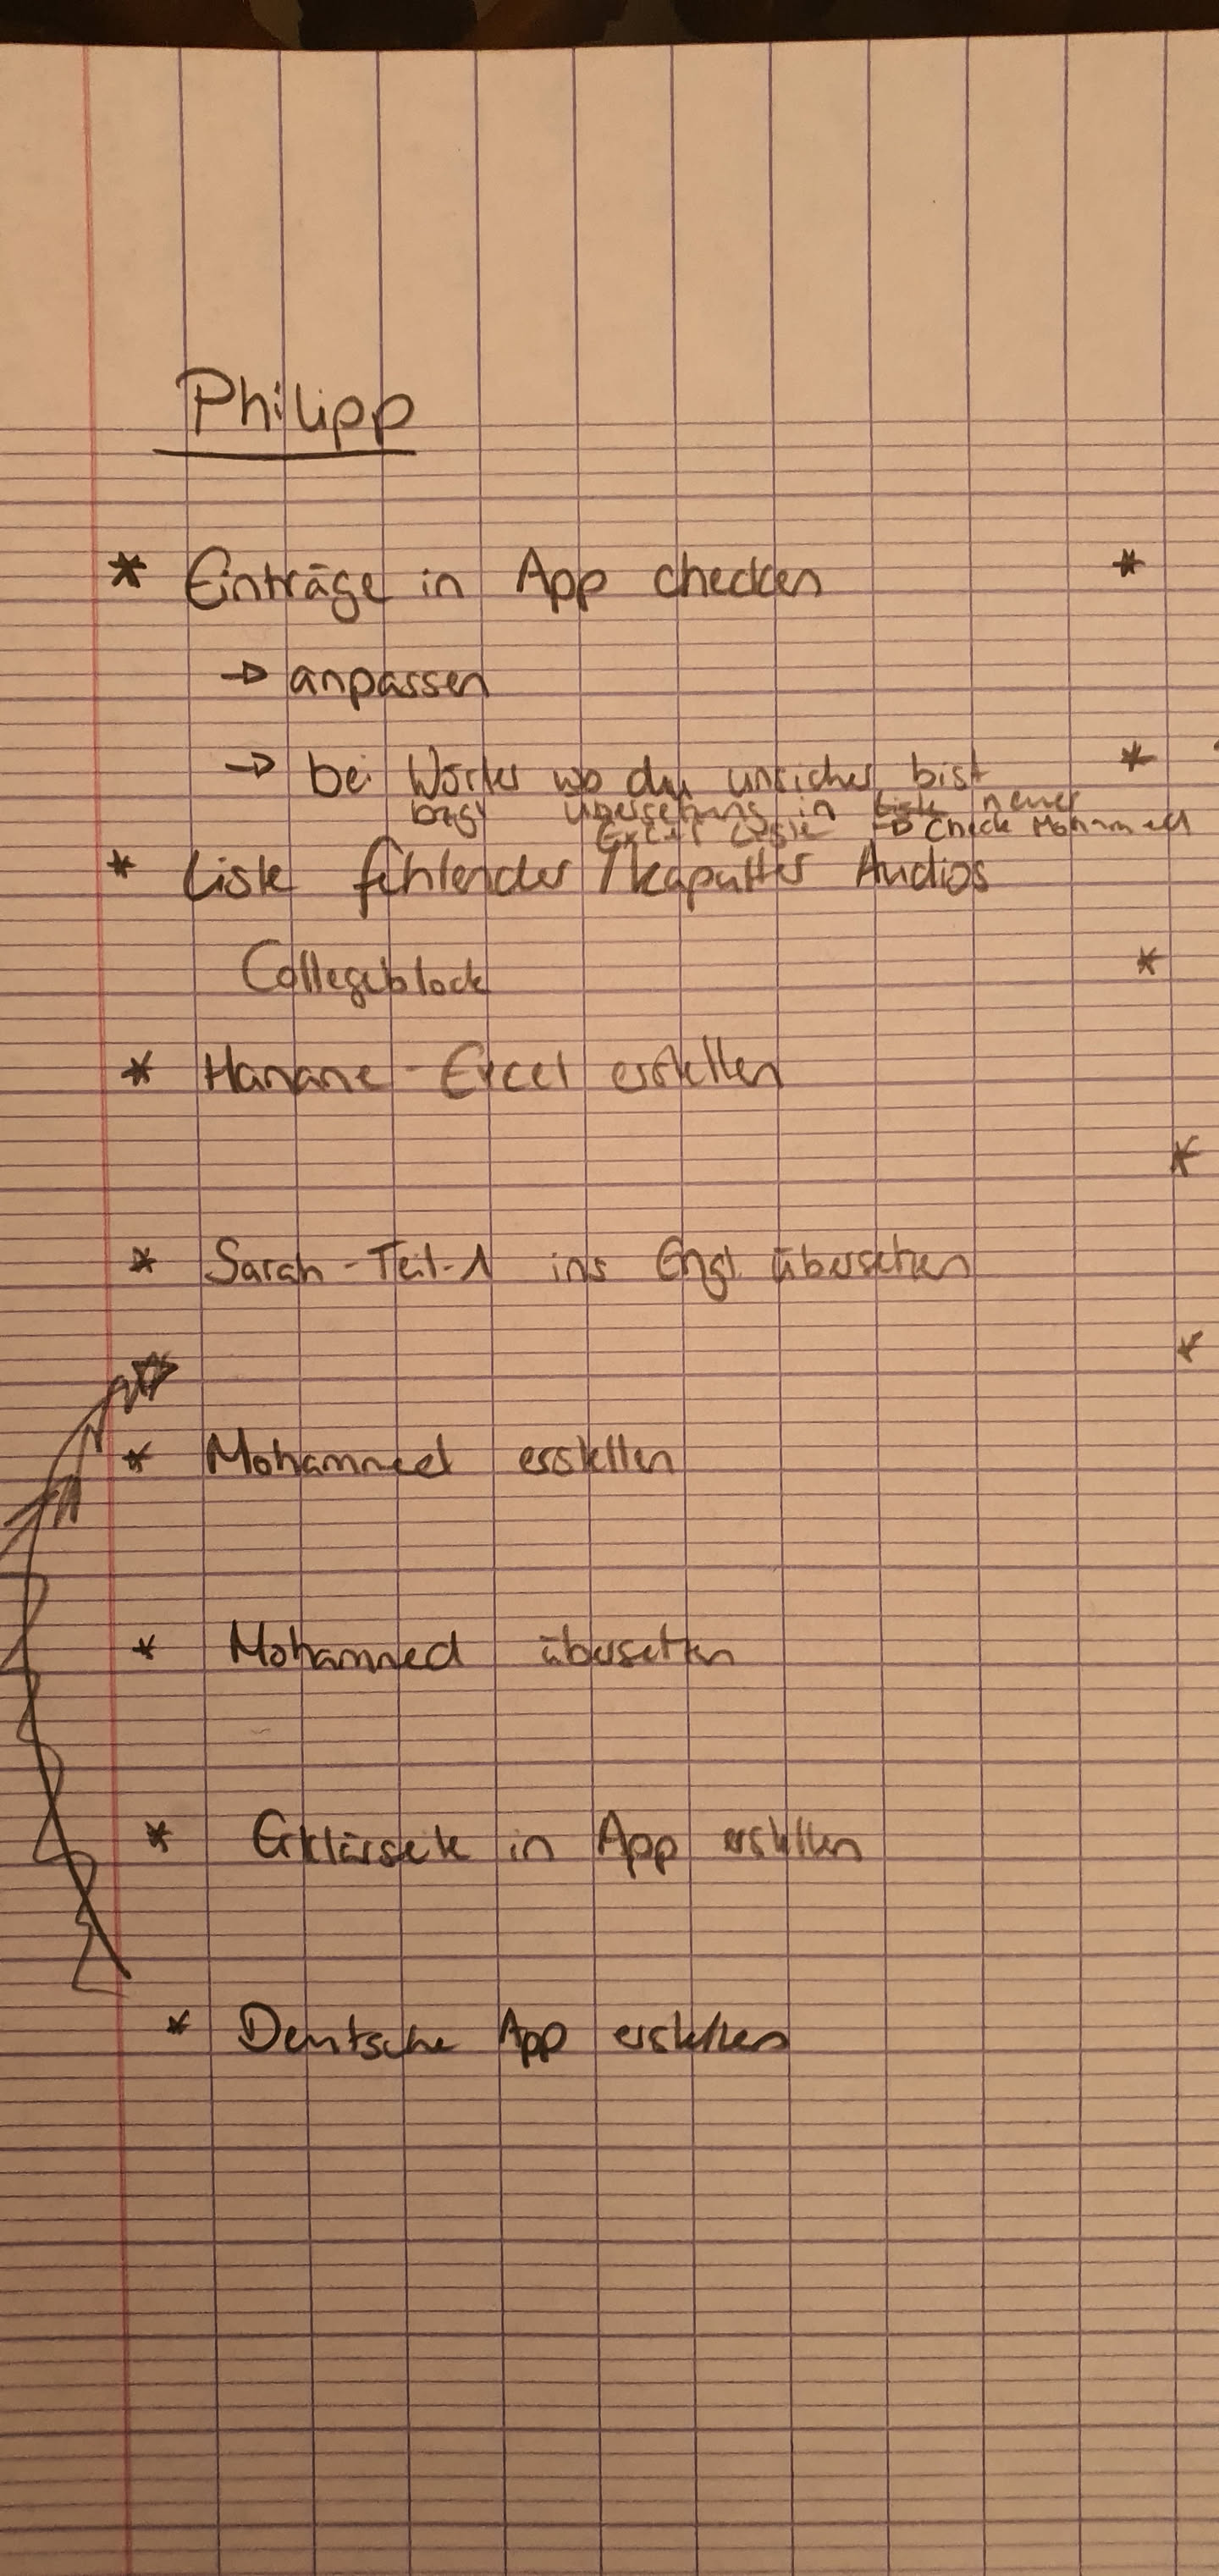 Philipp
* Einträge in App checken
→ anpassen
→ bei Wörter wo du unsicher bist
bzgl Übersetzung in Liste neuer
Excel Liste → Check Mohammed
* Liste fehlender / kaputter Audios
Collegeblock
* Hanane - Excel erstellen
* Sarah - Teil-1 ins Engl. übersetzen
* Mohammed erstellen
* Mohammed übersetzen
* Erklärseite in App erstellen
* Deutsche App erstellen